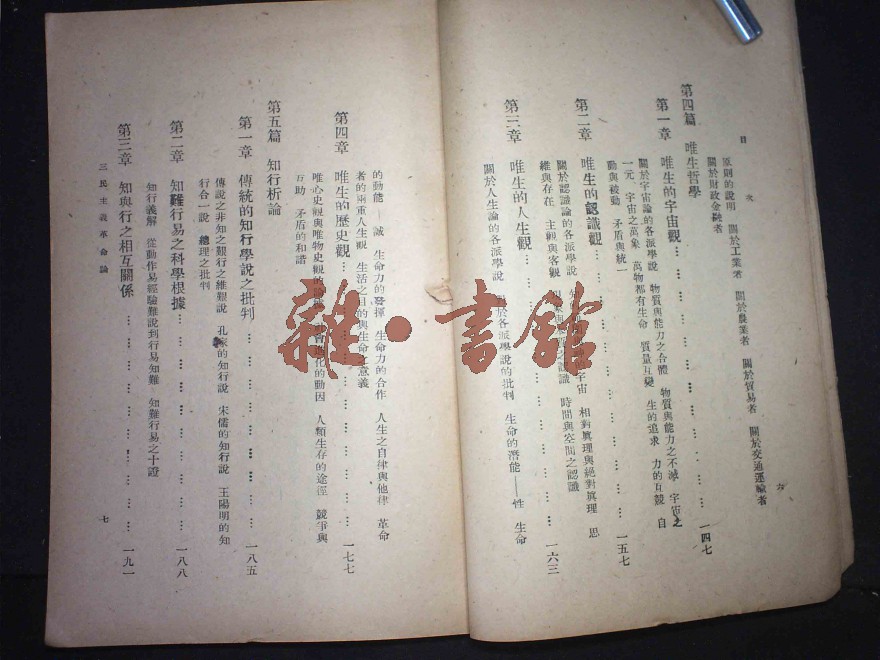 目次
六
原則的說明 關於工業者 關於農業者 關於貿易者 關於交通運輸者
關於財政金融者
第四篇 唯生哲學
第一章 唯生的宇宙觀 … … … … … … … … 一四七
關於宇宙論的各派學說 物質與能力之合體 物質與能力之不滅 宇宙之
一元 宇宙之萬象 萬物都有生命 質量互變 生的追求 力的互競 自
動與被動 矛盾與統一
第二章 唯生的認識觀 … … … … … … … … 一五七
關於認識論的各派學說 宇宙 相對真理與絕對真理 思
維與存在 主觀與客觀 認識 時間與空間之認識
第三章 唯生的人生觀 … … … … … … … … 一六三
關於人生論的各派學說 對於各派學說的批判 生命的潛能——性 生命
的動能——誠 生命力的發揮 生命力的合作 人生之自律與他律 革命
者的兩重人生觀 生活之目的與生命之意義
第四章 唯生的歷史觀 … … … … … … … … 一七七
唯心史觀與唯物史觀的 進化的動因 人類生存的途徑 競爭與
互助 矛盾的和諧
第五篇 知行析論
第一章 傳統的知行學說之批判 … … … … … … 一八五
傳說之非知之難行之維艱說 孔家的知行說 宋儒的知行說 王陽明的知
行合一說 總理之批判
第二章 知難行易之科學根據 … … … … … … … 一八八
知行義解 從動作易經驗難說到行易知難 知難行易之十證
第三章 知與行之相互關係 … … … … … … … 一九一
三民主義革命論
七
雜·書館